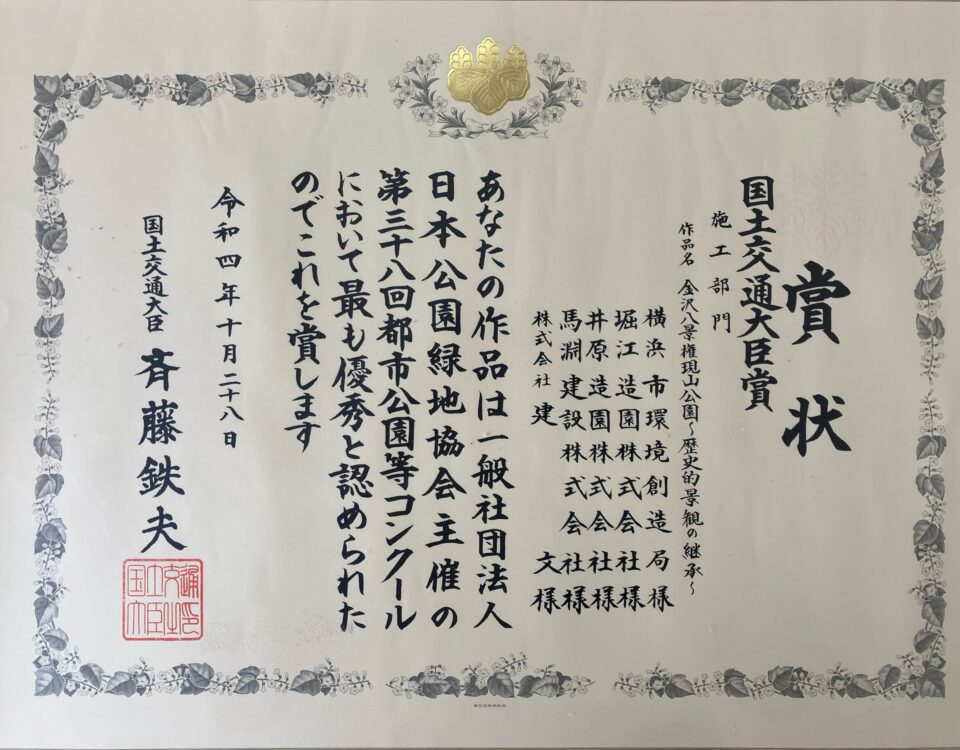 賞状
国土交通大臣賞
施工部門
作品名 金沢八景権現山公園～歴史的景観の継承～
横浜市環境創造局様
堀江造園株式会社様
井原造園株式会社様
馬淵建設株式会社様
株式会社建文様
あなたの作品は一般社団法人
日本公園緑地協会主催の
第三十八回都市公園等コンクール
において最も優秀と認められた
のでこれを賞します
令和四年十月二十八日
国土交通大臣 斉藤鉄夫
国土交通大臣之印